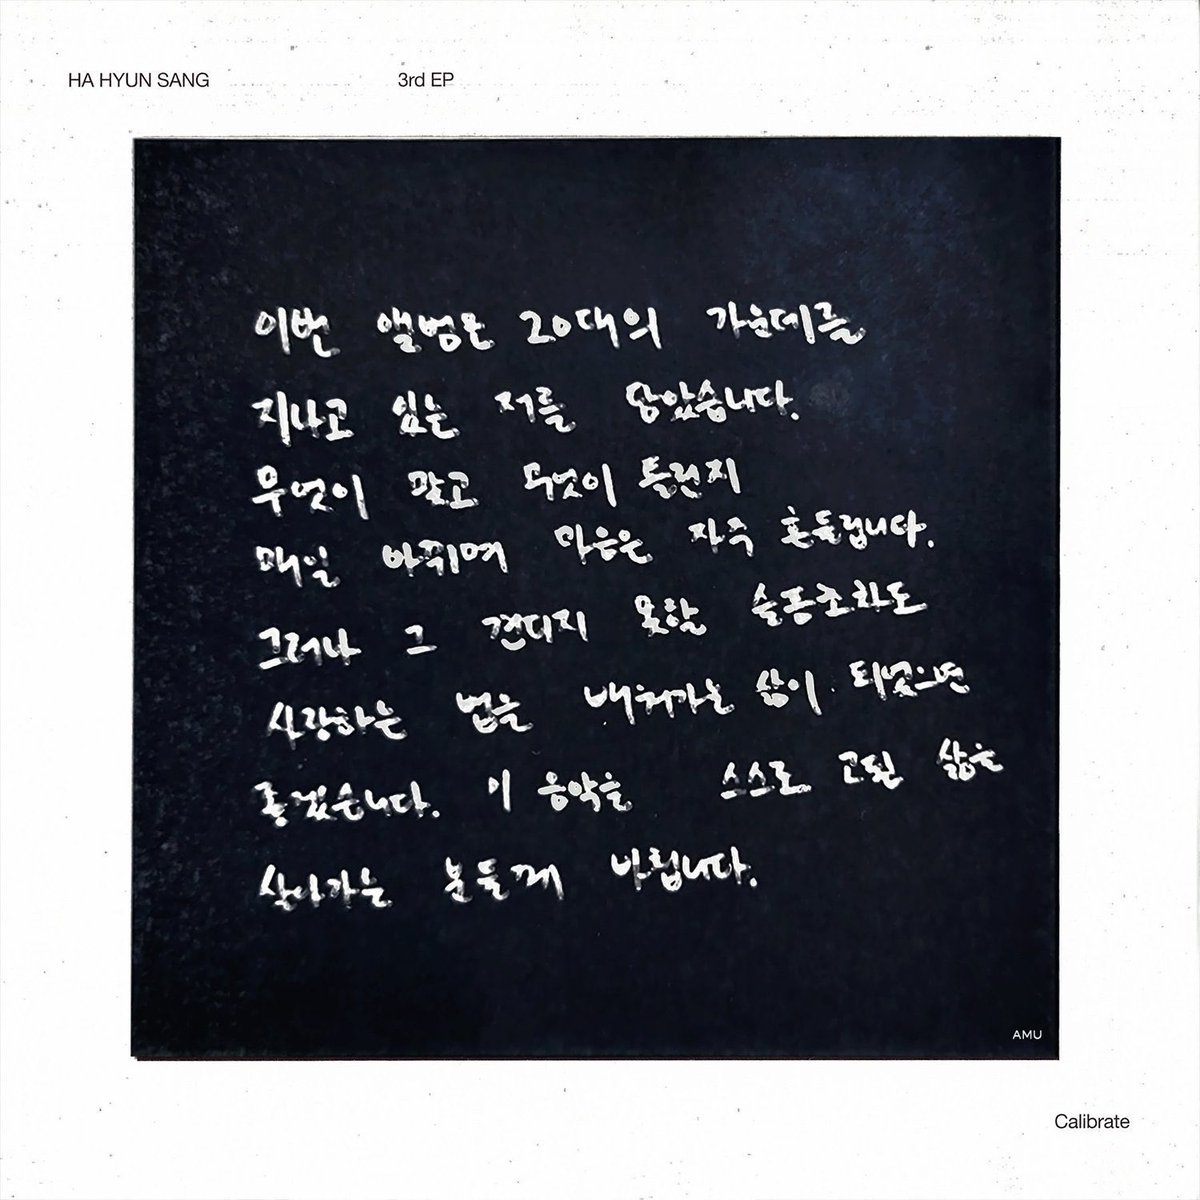 HA HYUN SANG 3rd EP
이번 앨범은 20대의 가운데를
지나고 있는 저를 담았습니다.
무엇이 맞고 무엇이 틀린지
매일 바뀌며 마음은 자주 흔들립니다.
그러나 그 견디지 못할 슬픔조차도
사랑하는 법을 배워가는 삶이 되었으면
좋겠습니다. 이 음악을 스스로 고된 삶을
살아가는 분들께 바칩니다.
AMU
Calibrate